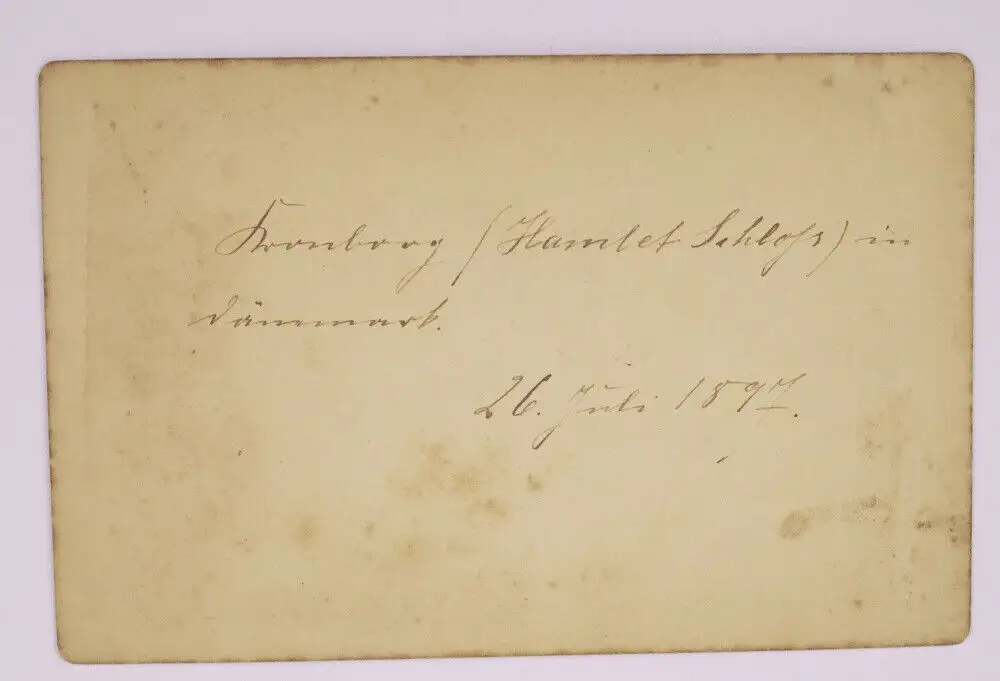 Kronborg (Hamlet Schloß) in
Dänemark.
26. Juli 1897.